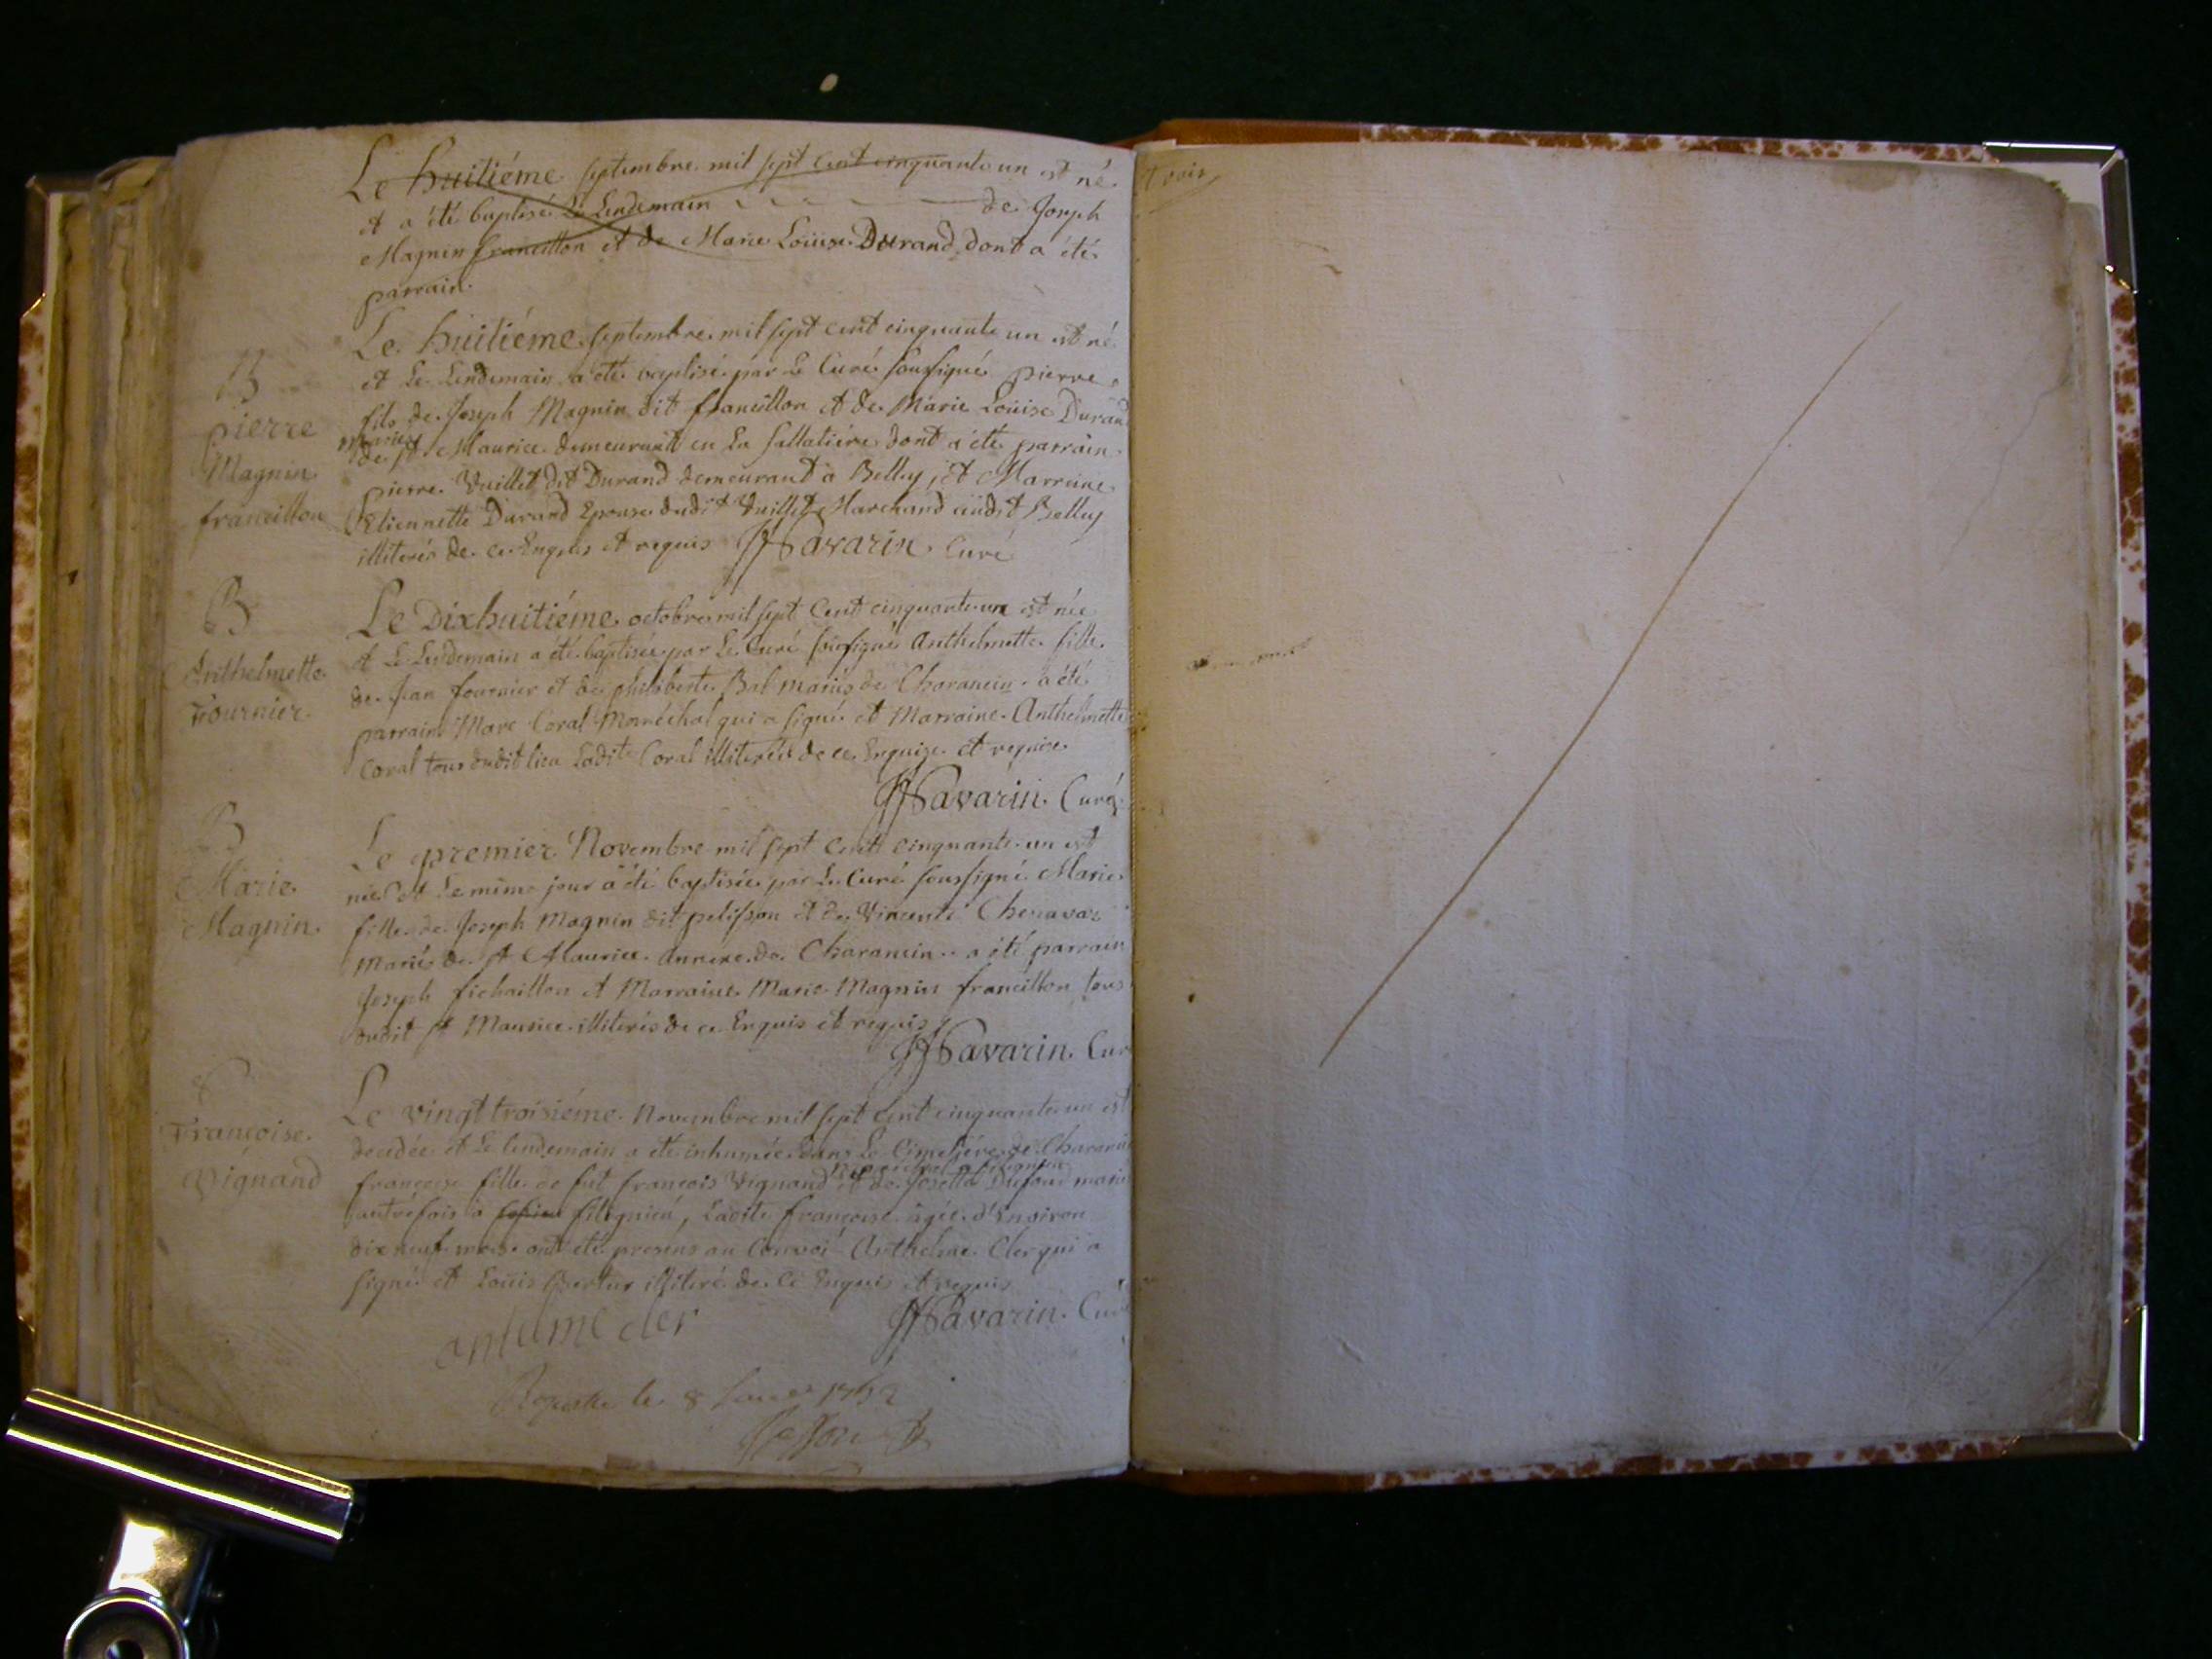 Le huitiéme septembre mil sept cent cinquante un est né
et a été baptisé Le Lendemain de Joseph
Magnin francillon et de Marie Loüise Durand, dont a été
parrain
Le huitiéme septembre mil sept cent cinquante un est né
et Le Lendemain a été baptisé par Le Curé soussigné pierre
fils de Joseph Magnin dit francillon et de Marie Loüise Durand
mariés
de St Maurice demeurant en La sallatiére dont a été parrain
pierre Vuillet dit Durand demeurant a Belley, et Marraine
Etiennette Durand Epouse dudit Vuillet Marchand audit Belley
illiterés de ce Enquis et requis Savarin Curé
B
pierre
Magnin
francillon
Le Dixhuitiéme octobre mil sept Cent cinquante un est née
et Le Lendemain a été baptisée par Le Curé soussigné Anthelmette fille
de Jean fournier et de philiberte Bal mariés de Charancin a été
parrain Marc Coral Maréchal qui a signé et Marraine Anthelmette
Coral tous dudit lieu Ladite Coral illiterée de ce Enquise et requise
Savarin Curé
B
Anthelmette
Fournier
Le premier Novembre mil sept Cent cinquante un est
née et Le même jour a été baptisée par Le Curé soussigné Marie
fille de Joseph Magnin dit pelisson et de Vincente Chenavaz
Mariés de St Maurice Annexe de Charancin a été parrain
Joseph fichaillon et Marraine Marie Magnin francillon tous
dudit St Maurice illiterés de ce Enquis et requis
Savarin Cur
B
Marie
Magnin
Le vingt troisiéme Novembre mil sept Cent cinquante un est
decedée et Le lendemain a été inhumée dans Le Cimetiére de Charancin
françoise fille de fut francois Vignand et de Josette Dufour mariés
autrefois a filignieu, Ladite francoise agée d'Environ
dix neuf mois ont été presens au Convoi Anthelme Cler qui a
signé et Loüis Bertur illiteré de ce Enquis et requis
antelme cler Savarin Curé
Françoise
Vignand
le 8 1752